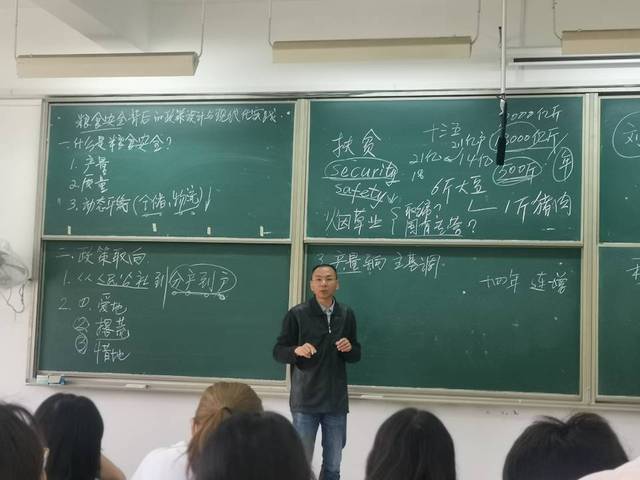 粮食安全背后的政策设计与现代化实践
一.什么是粮食安全?
1. 产量
2. 质量
3. 动态可持续(仓储、物流)
二. 政策取向
1. 从人民公社到分产到户
2. ①. 爱地
② 撂荒
③ 惜地
扶贫
security
safety
烟草业
国有主营?
十三五
21亿亩
21亿 14亿
18
13000亿斤
500斤/年
6斤大豆
1斤猪肉
3. 产量纲 主基调
十四年 连增
刘